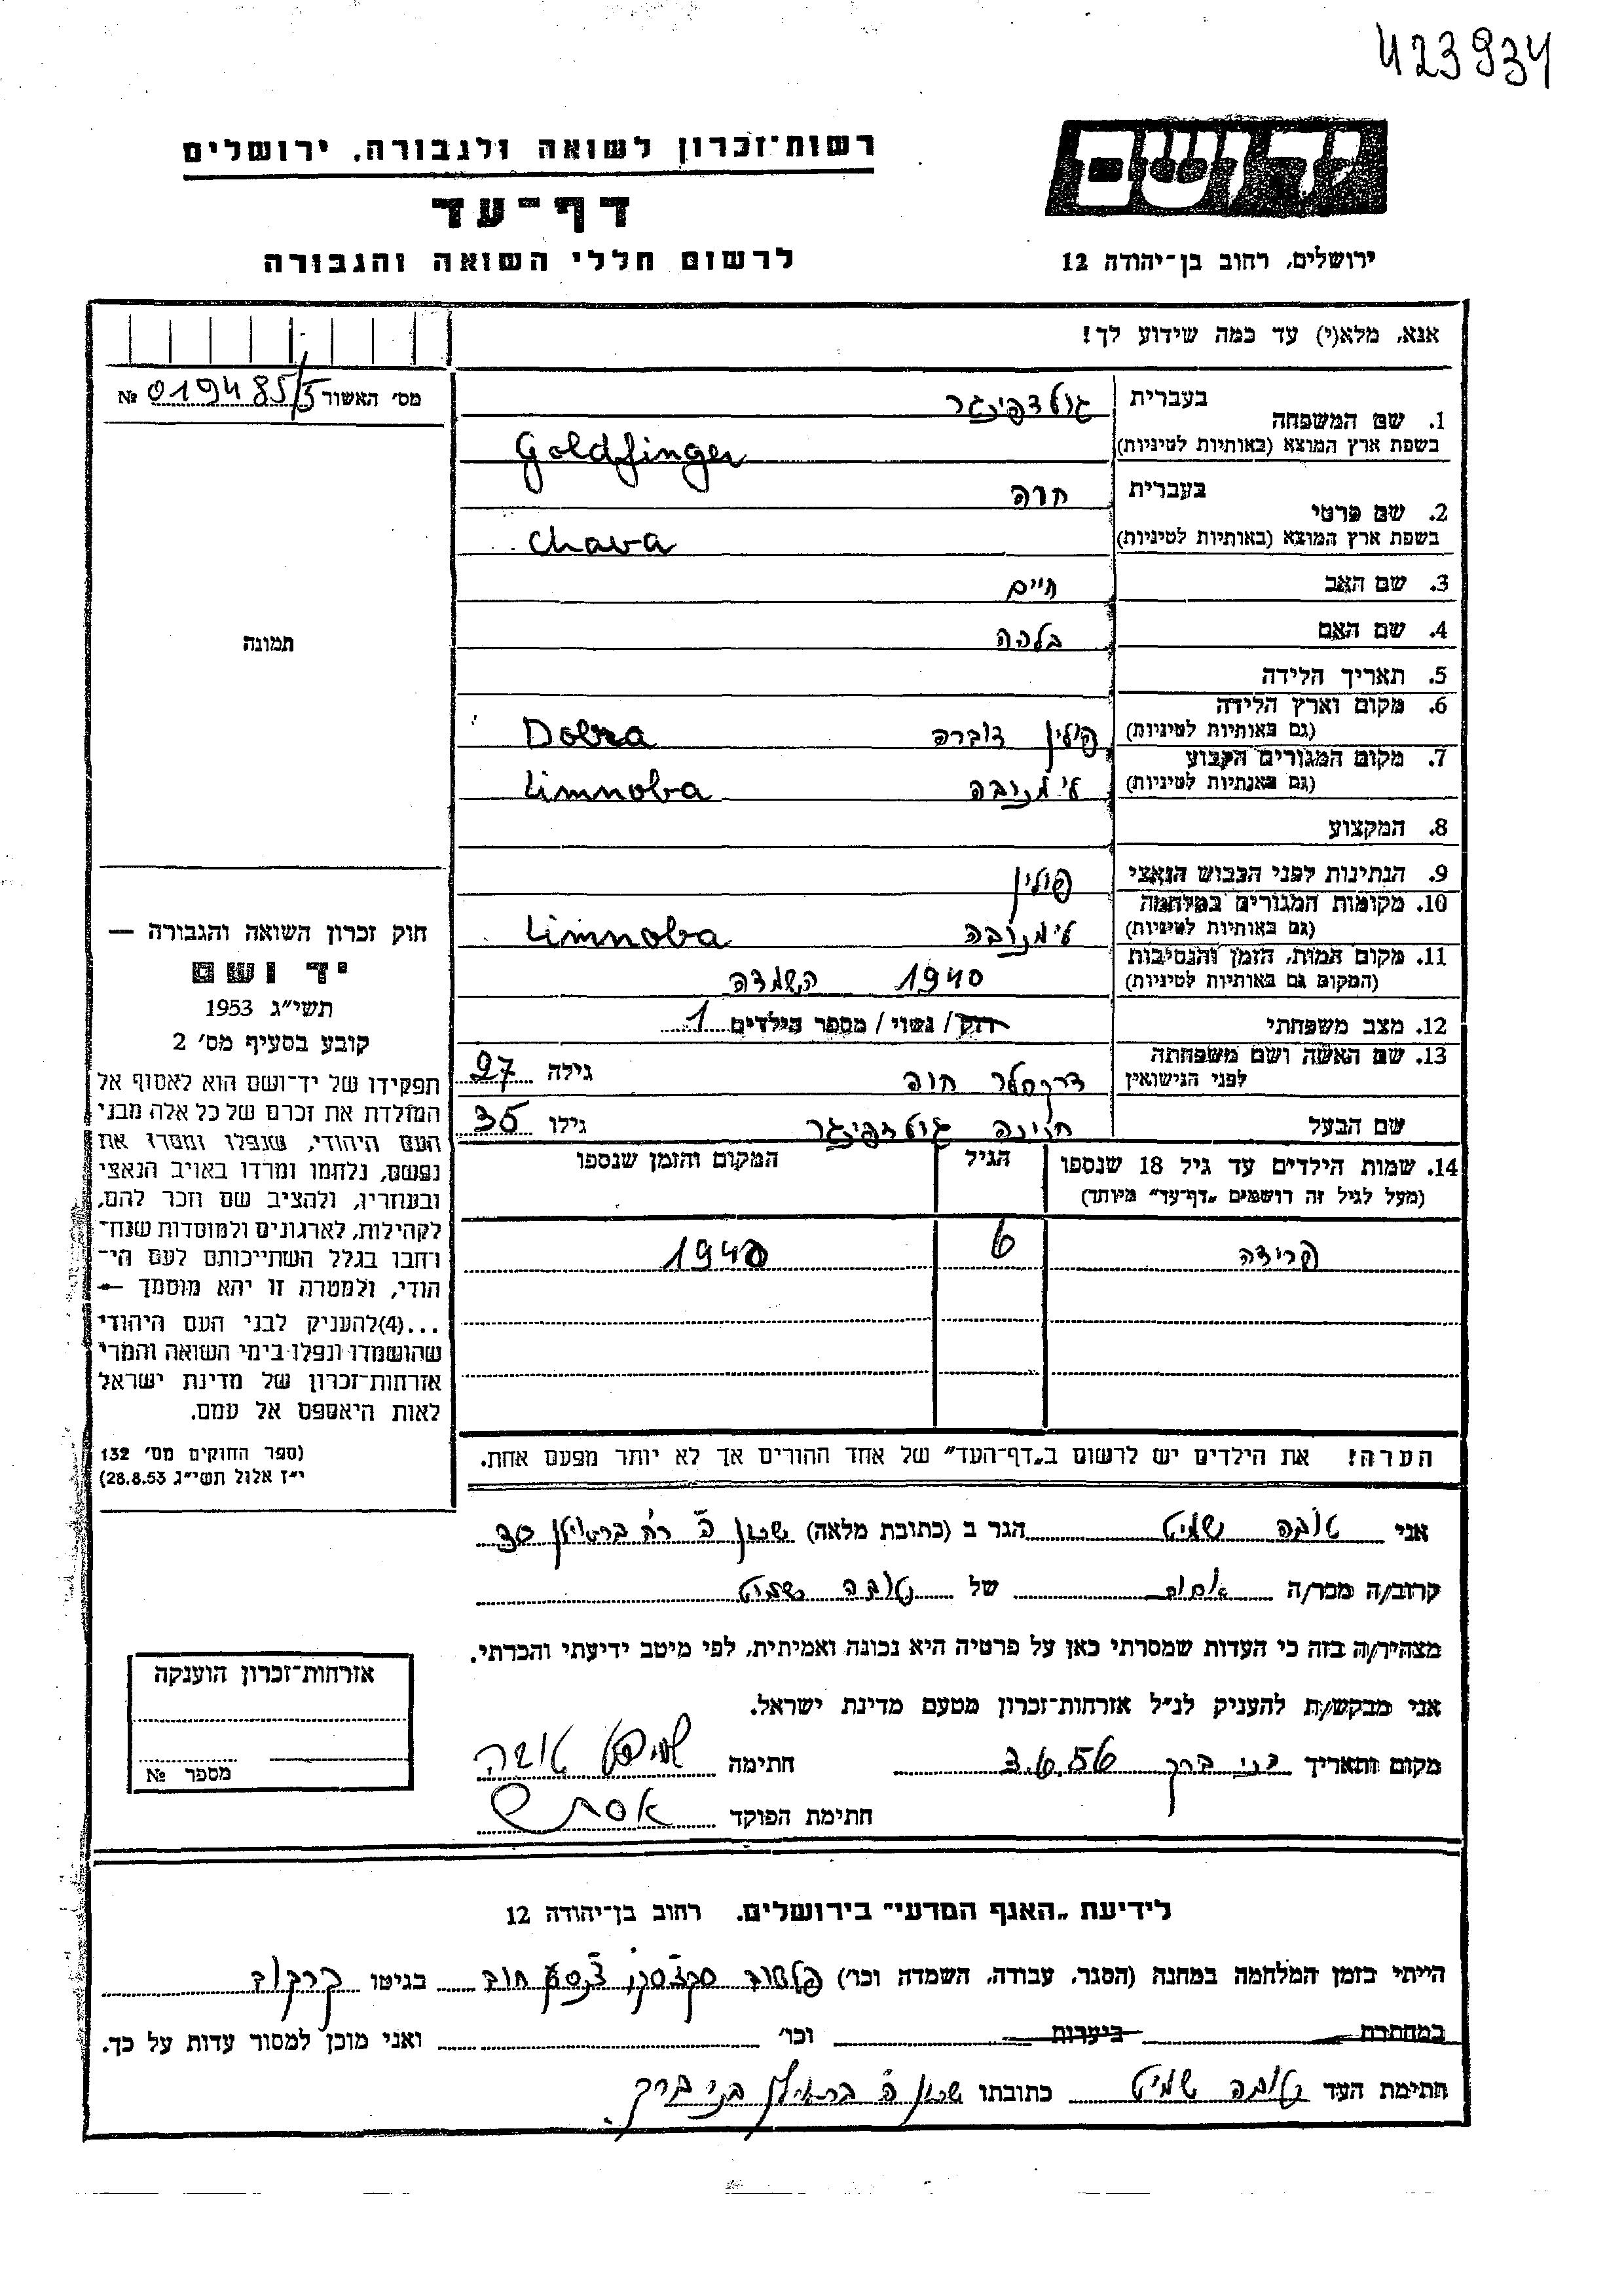 423934
יד ושם
רשות־זכרון לשואה ולגבורה, ירושלים
דף־עד
לרשום חללי השואה והגבורה
ירושלים, רחוב בן־יהודה 12
אנא, מלא(י) עד כמה שידוע לך!
מס׳ האשור 019485/5 №
1. שם המשפחה בעברית גולדפינגר
בשפת ארץ המוצא (באותיות לטיניות) Goldfinger
2. שם פרטי בעברית חוה
בשפת ארץ המוצא (באותיות לטיניות) Chava
3. שם האב חיים
4. שם האם בלהה
תמונה
5. תאריך הלידה
6. מקום וארץ הלידה
(גם באותיות לטיניות) פולין דוברה Dobra
7. מקום המגורים הקבוע
(גם באותיות לטיניות) לימנובה Limnoba
8. המקצוע
9. הנתינות לפני הכבוש הנאצי פולין
10. מקומות המגורים במלחמה
(גם באותיות לטיניות) לימנובה Limnoba
11. מקום המות, הזמן והנסיבות
(המקום גם באותיות לטיניות) 1940 השמדה
12. מצב משפחתי רוק/ נשוי/ מספר הילדים 1
13. שם האשה ושם משפחתה
לפני הנישואין דרכסלר חוה גילה 27
שם הבעל חנינה גולדפינגר גילו 35
14. שמות הילדים עד גיל 18 שנספו הגיל המקום והזמן שנספו
(מעל לגיל זה רושמים „דף־עד״ מיוחד)
פרידה 6 1940
חוק זכרון השואה והגבורה —
יד ושם
תשי״ג 1953
קובע בסעיף מס׳ 2
תפקידו של יד־ושם הוא לאסוף אל
המולדת את זכרם של כל אלה מבני
העם היהודי, שנפלו ומסרו את
נפשם, נלחמו ומרדו באויב הנאצי
ובעוזריו, ולהציב שם וזכר להם,
לקהילות, לארגונים ולמוסדות שנח־
רבו בגלל השתייכותם לעם הי־
הודי, ולמטרה זו יהא מוסמך —
...(4) להעניק לבני העם היהודי
שהושמדו ונפלו בימי השואה והמרי
אזרחות־זכרון של מדינת ישראל
לאות היאספם אל עמם.
(ספר החוקים מס׳ 132
י״ז אלול תשי״ג 28.8.53)
הערה! את הילדים יש לרשום ב„דף־העד״ של אחד ההורים אך לא יותר מפעם אחת.
אני טובה שמיט הגר ב (כתובת מלאה) שכון ה׳ רח׳ ברזילן 30
קרוב/ה מכר/ה אחות של טובה שמיט
מצהיר/ה בזה כי העדות שמסרתי כאן על פרטיה היא נכונה ואמיתית, לפי מיטב ידיעתי והכרתי.
אני מבקש/ת להעניק לנ״ל אזרחות־זכרון מטעם מדינת ישראל.
מקום ותאריך בני ברק 3.6.56 חתימה שמיט טובה
חתימת הפוקד
אזרחות־זכרון הוענקה
מספר №
לידיעת „האגף המדעי״ בירושלים. רחוב בן־יהודה 12
הייתי בזמן המלחמה במחנה (הסגר, עבודה, השמדה וכו׳) פלשוב בגיטו קרקוב
במחתרת ביערות וכו׳ ואני מוכן למסור עדות על כך.
חתימת העד טובה שמיט כתובתו שכון ה׳ ברזילן בני ברק